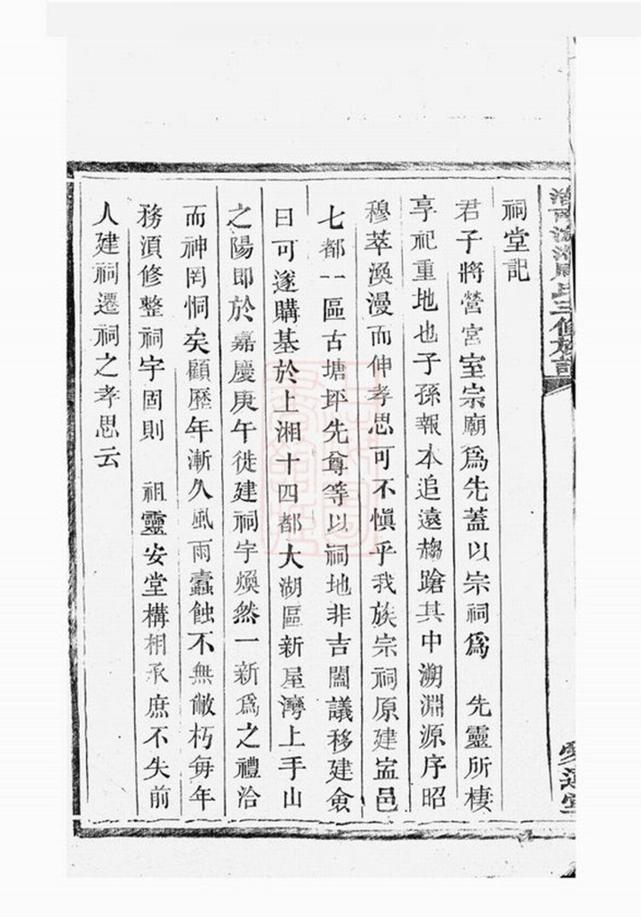 氏三修族譜
愛蓮堂
祠堂記
君子將營宮室宗廟爲先蓋以宗祠爲　先靈所棲
享祀重地也子孫報本追遠趨蹌其中溯淵源序昭
穆萃渙漫而伸孝思可不愼乎我族宗祠原建寍邑
七都一區古塘坪先尊等以祠地非吉闔議移建僉
曰可遂購基於上湘十四都大湖區新屋灣上手山
之陽即於嘉慶庚午徙建祠宇煥然一新爲之禮洽
而神罔恫矣顧歷年漸久風雨蠹蝕不無敝朽每年
務須修整祠宇固則　祖靈安堂構相承庶不失前
人建祠遷祠之孝思云